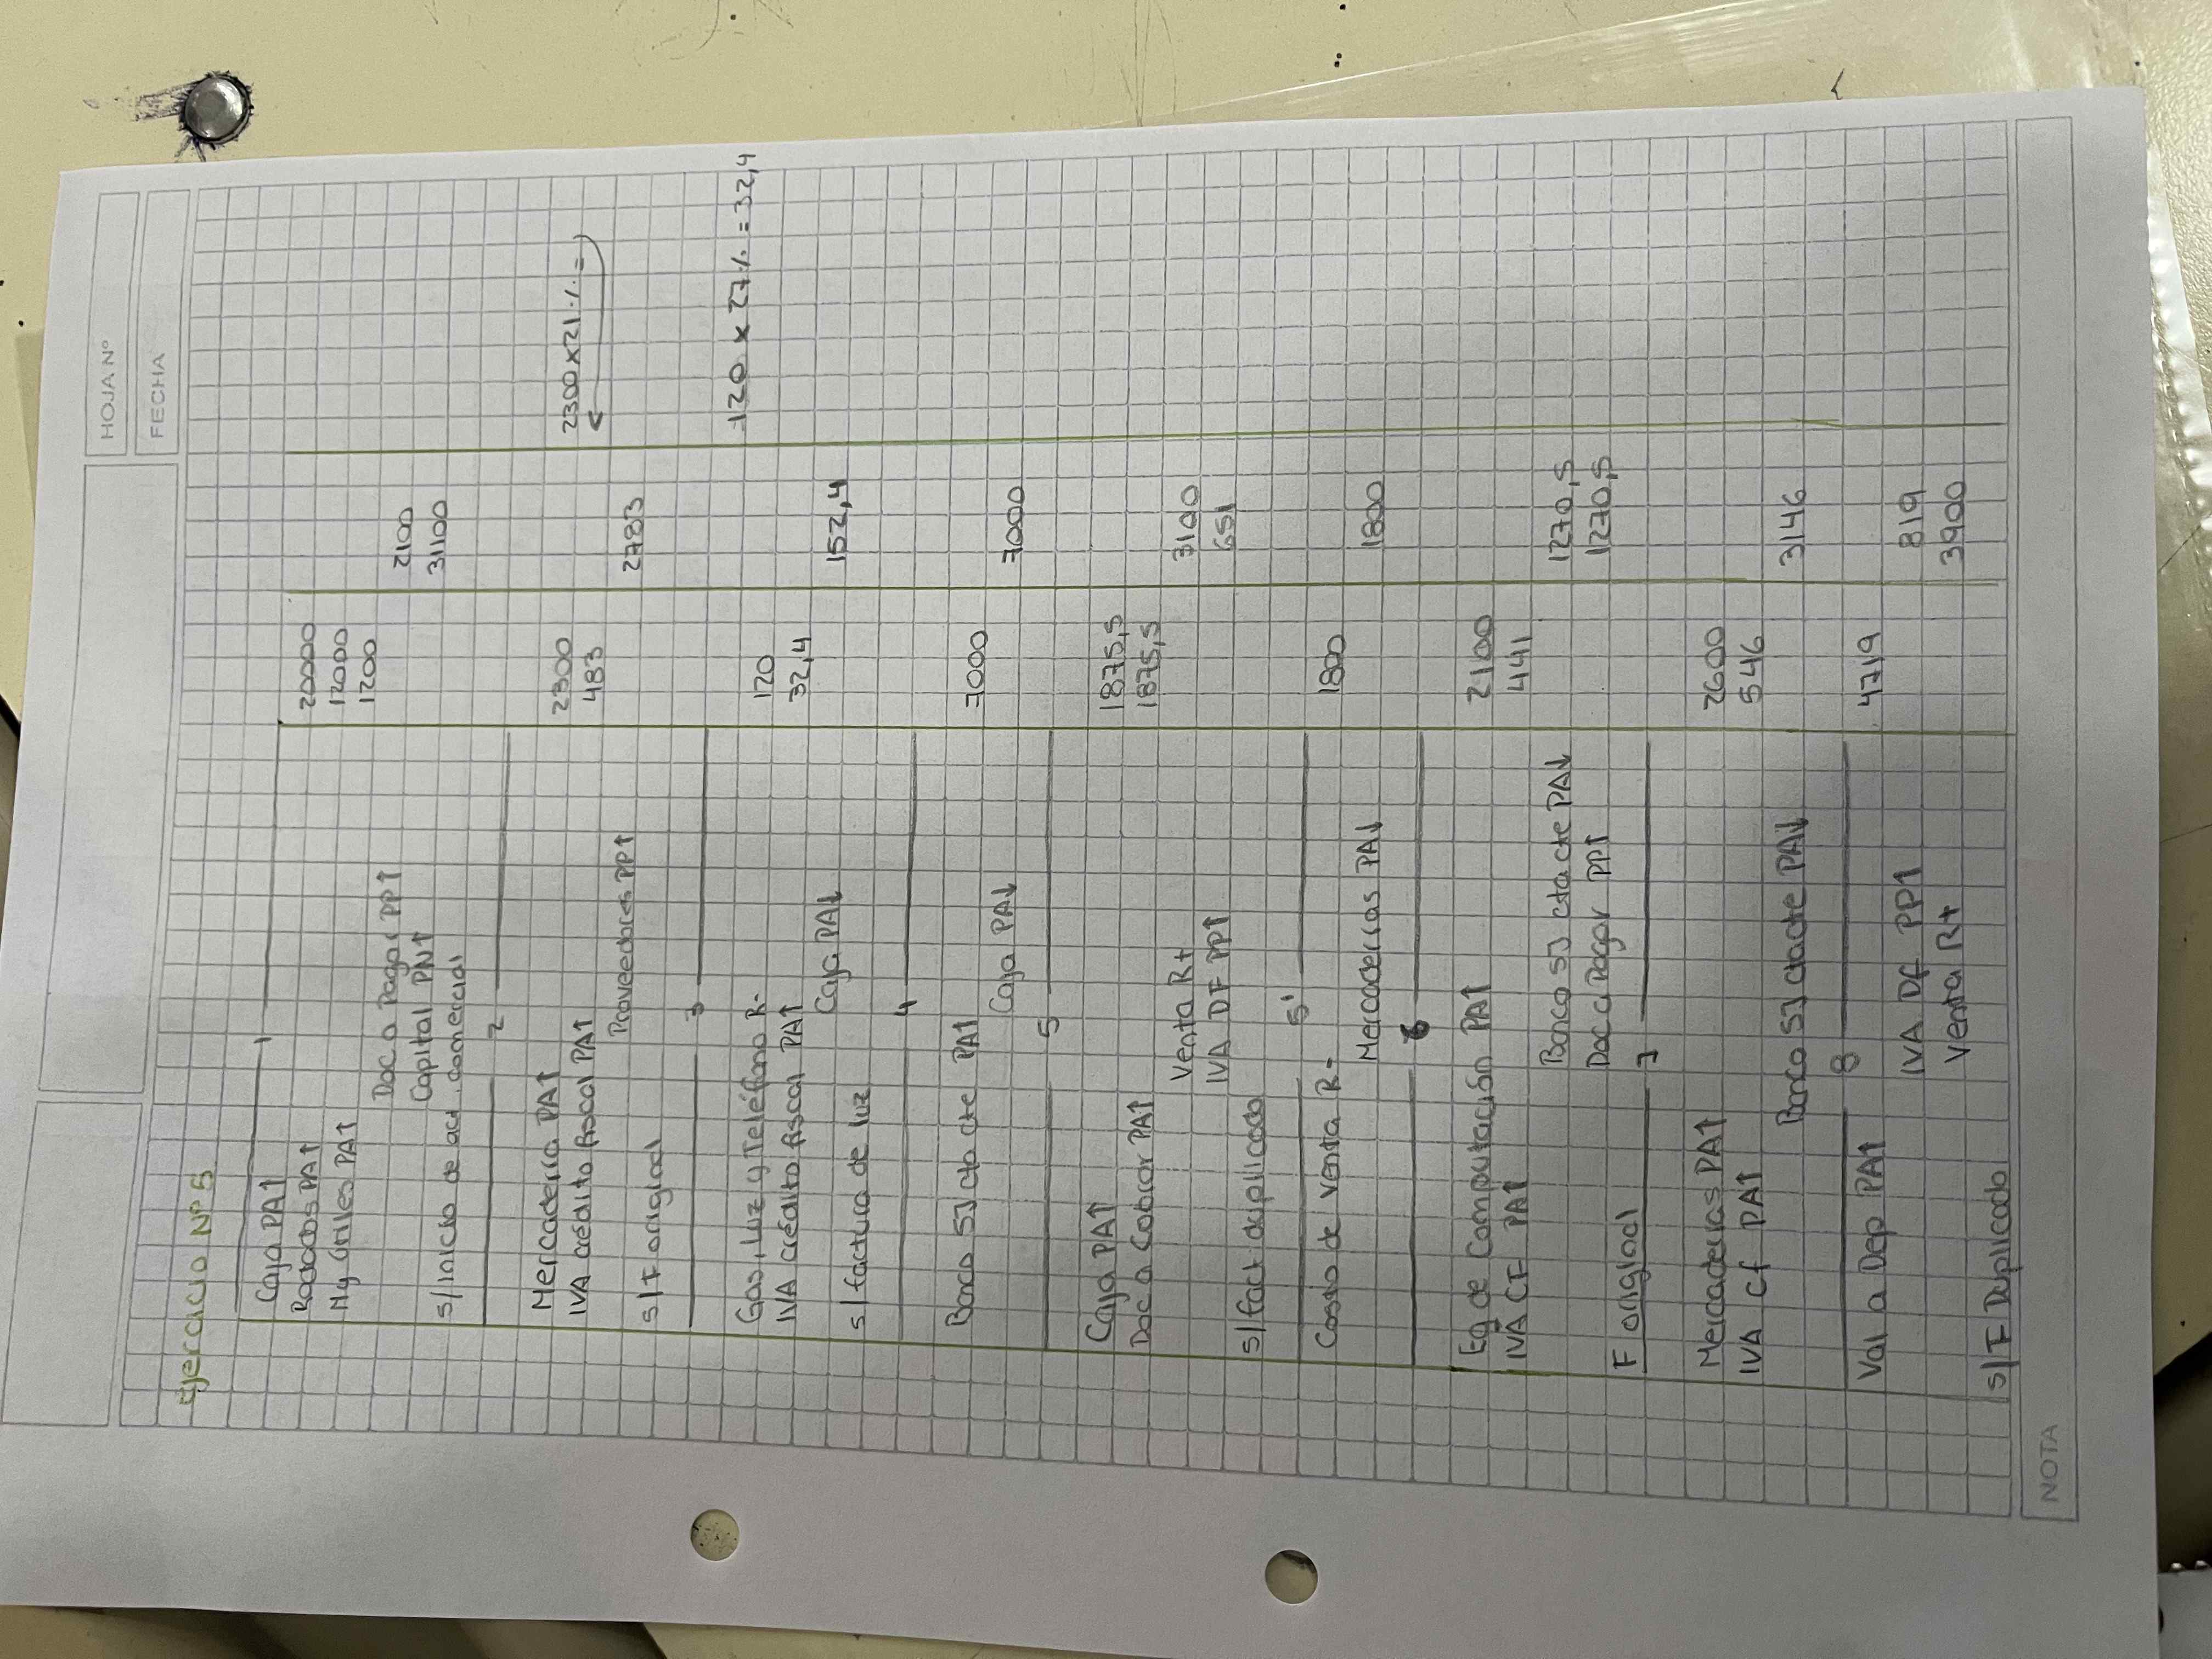 HOJA Nº
FECHA
Ejercicio Nº 5
1
Caja PA↑ 20000
Rodados PA↑ 12000
My Utiles PA↑ 1200
Doc a Pagar PP↑ 2100
Capital PN↑ 31100
s/inicio de act. comercial
2
Mercadería PA↑ 2300 2300x21%=
IVA crédito fiscal PA↑ 483
Proveedores PP↑ 2783
s/F original
3
Gas, Luz y Teléfono R- 120 120 x 27% = 32,4
IVA crédito fiscal PA↑ 32,4
Caja PA↓ 152,4
s/factura de luz
4
Banco SJ cta cte PA↑ 7000
Caja PA↓ 7000
5
Caja PA↑ 1875,5
Doc a Cobrar PA↑ 1875,5
Venta R+ 3100
IVA DF PP↑ 651
s/fact duplicado
5'
Costo de venta R- 1800
Mercaderias PA↓ 1800
6
Eq de Computación PA↑ 2100
IVA CF PA↑ 441
Banco SJ cta cte PA↓ 1270,5
Doc a Pagar PP↑ 1270,5
F original
7
Mercaderias PA↑ 2600
IVA Cf PA↑ 546
Banco SJ cta cte PA↓ 3146
8
Val a Dep PA↑ 4719
IVA DF PP↑ 819
Venta R+ 3900
s/F Duplicado
NOTA